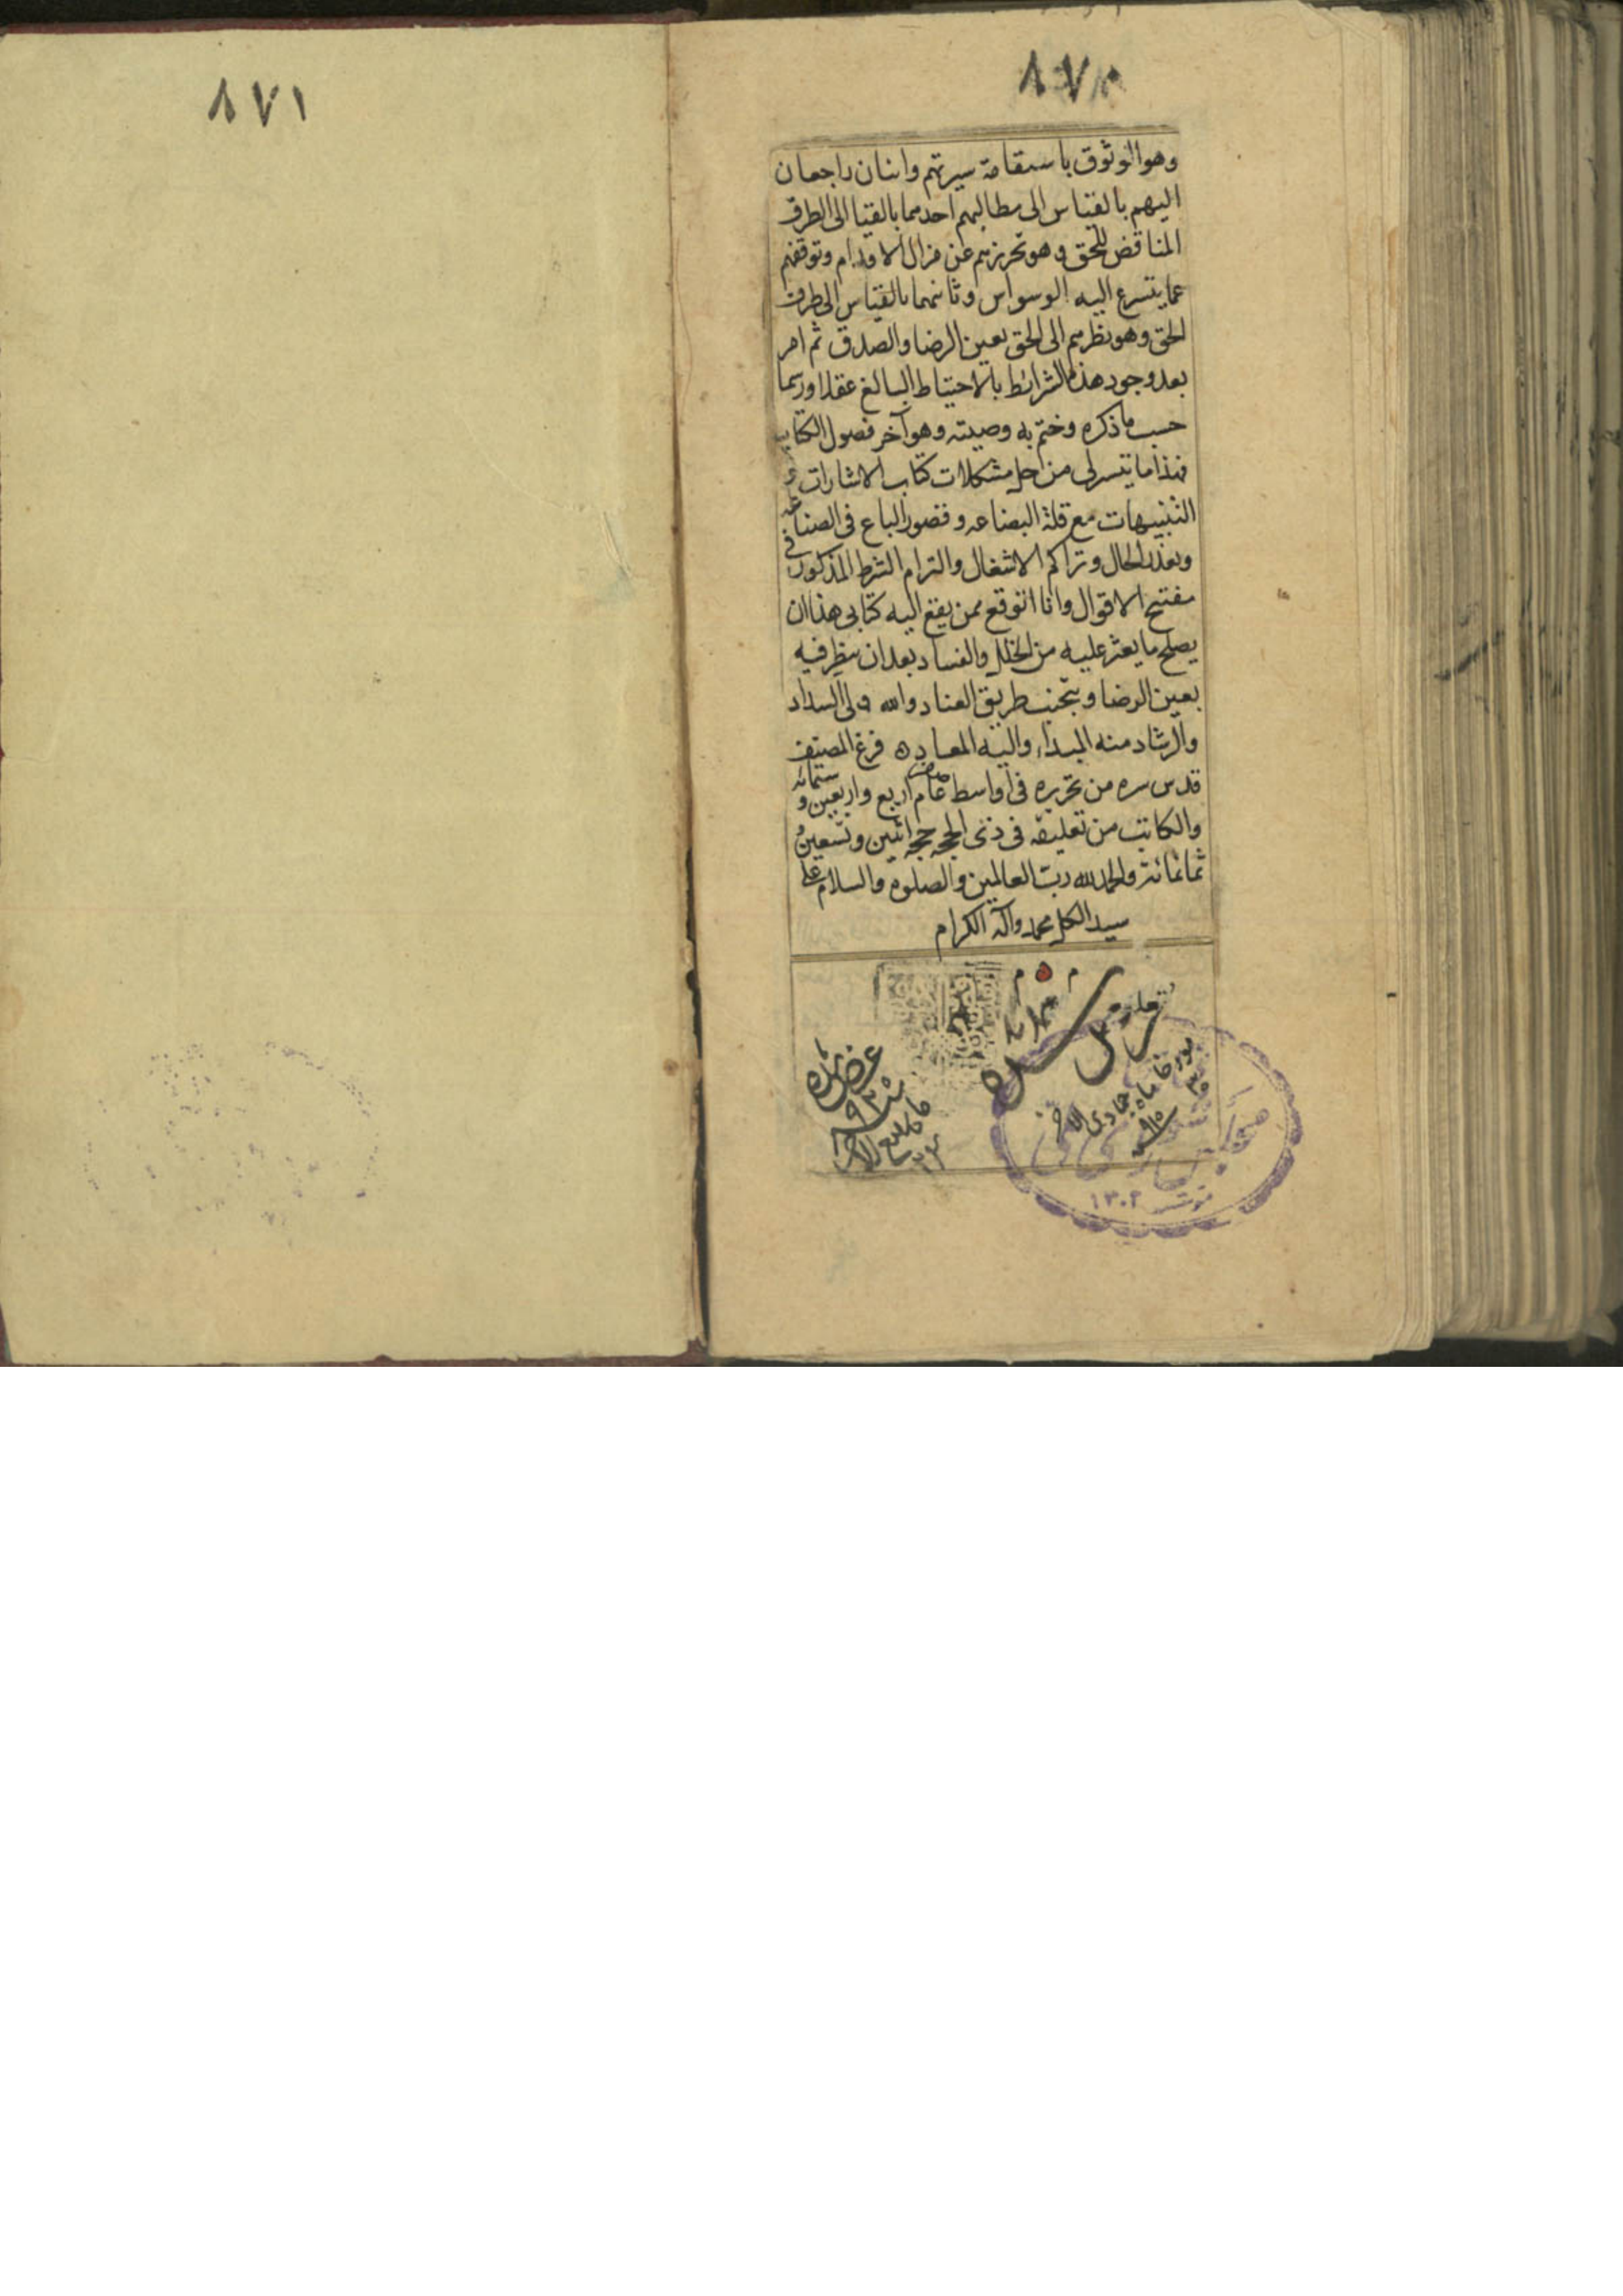 ٨٧٠
وهو الوثوق باستقامة سيرتهم واثنان راجعان
اليهم بالقياس الى مطالبهم احدهما بالقيا الى الطرف
المناقض للحق وهو تحرزهم عن مزال الاقدام وتوقفهم
عما يتسرع اليه الوسواس وثانيهما بالقياس الى طرف
الحق وهو نظرهم الى الحق بعين الرضا والصدق ثم امر
بعد وجود هذه الشرائط بالاحتياط البالغ عقلا ورسما
حسب ما ذكره وختم به وصيته وهو آخر فصول الكتاب
فهذا ما تيسر لى من حل مشكلات كتاب الاشارات و
التنبيهات مع قلة البضاعه وقصور الباع فى الصناعه
وتعذر الحال وتراكم الاشغال والتزام الشرط المذكور فى
مفتتح الاقوال وانا اتوقع ممن يقع اليه كتابى هذا ان
يصلح ما يعثر عليه من الخلل والفساد بعد ان ينظر فيه
بعين الرضا ويتجنب طريق العناد والله ولى السداد
والرشاد منه المبداء واليه المعاد ه فرغ المصنف
قدس سره من تحريره فى اواسط صفر عام اربع واربعين و ستمائه
والكاتب من تعليقه فى ذى الحجه حجه اثنين وتسعين و
ثمانمائة والحمد لله رب العالمين والصلوة والسلام على
سيد الكل محمد وآله الكرام
ماه جمادى الاخر
عرض شد
٩٣
١٣٠٢
٨٧١